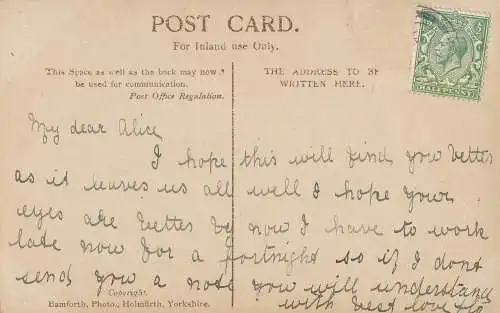 POST CARD.
For Inland use Only.
This Space as well as the back may now
be used for communication.
Post Office Regulation.
THE ADDRESS TO BE
WRITTEN HERE.
HALFPENNY
My dear Alice
I hope this will find you better
as it leaves us all well I hope your
eyes are better by now I have to work
late now for a fortnight so if I dont
send you a note you will understand
with best love
Copyright.
Bamforth, Photo., Holmfirth, Yorkshire.